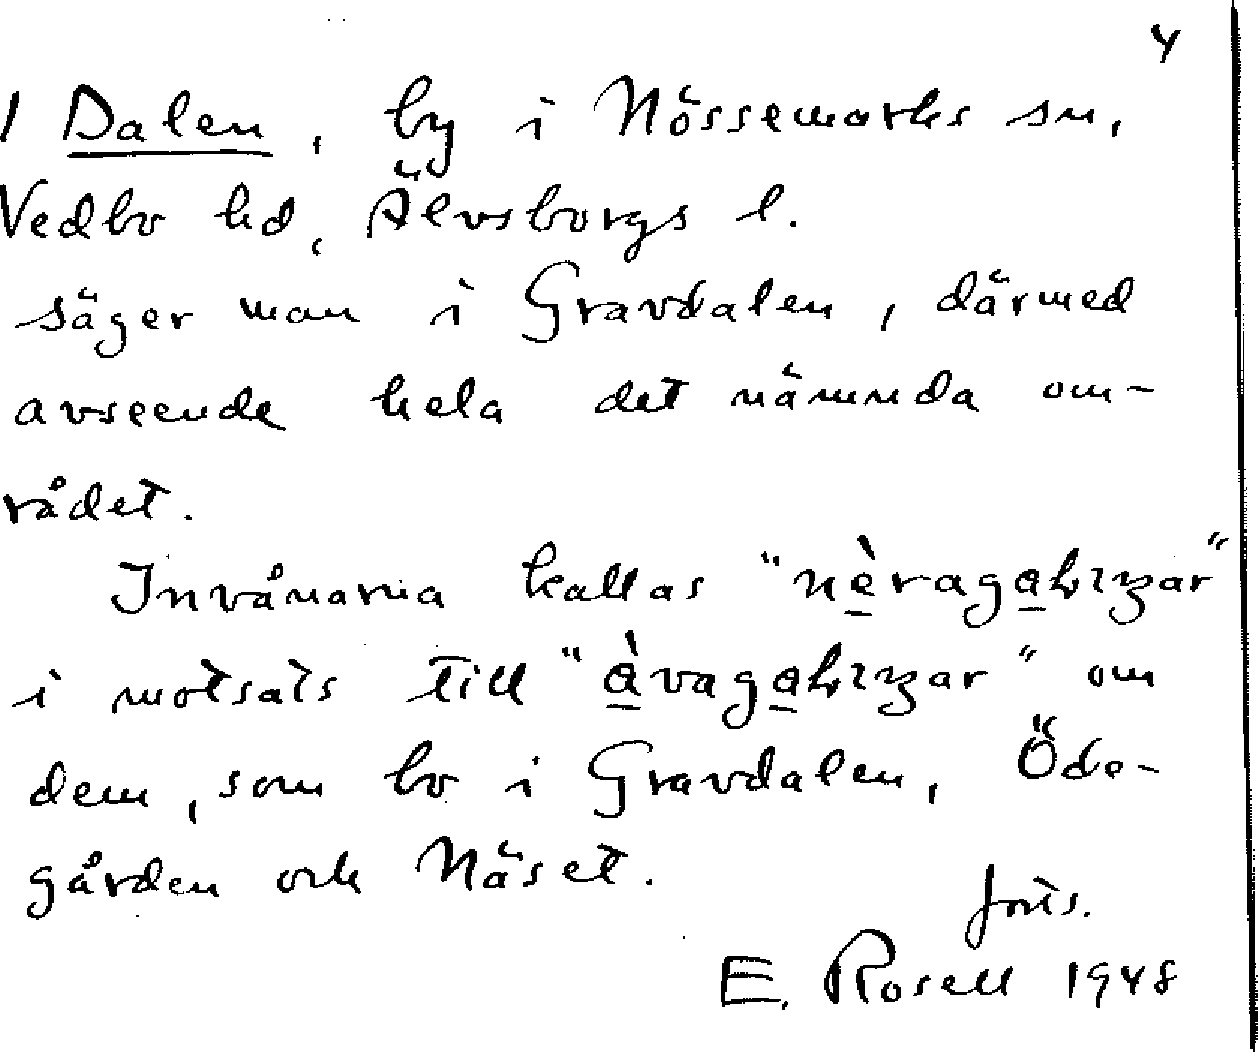 4
1 Dalen, by i Nössemarks sn,
Vedbo hd, Älvsborgs l.
säger man i Gravdalen, därmed
avseende hela det nämnda om-
rådet.
Invånarna kallas "
i motsats till " " om
dem, som bo i Gravdalen, Öde-
gården och Näset.
forts.
E. Rosell 1948